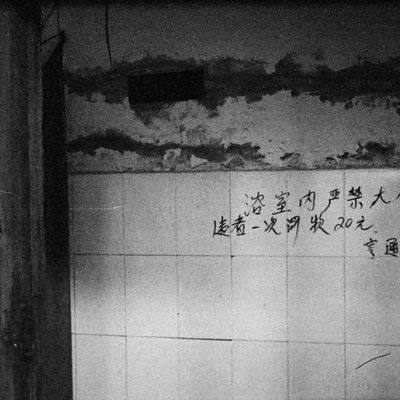 浴室内严禁大
违者一次罚款20元
亨通